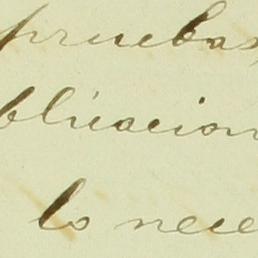 pruebas
blicacion
lo nece